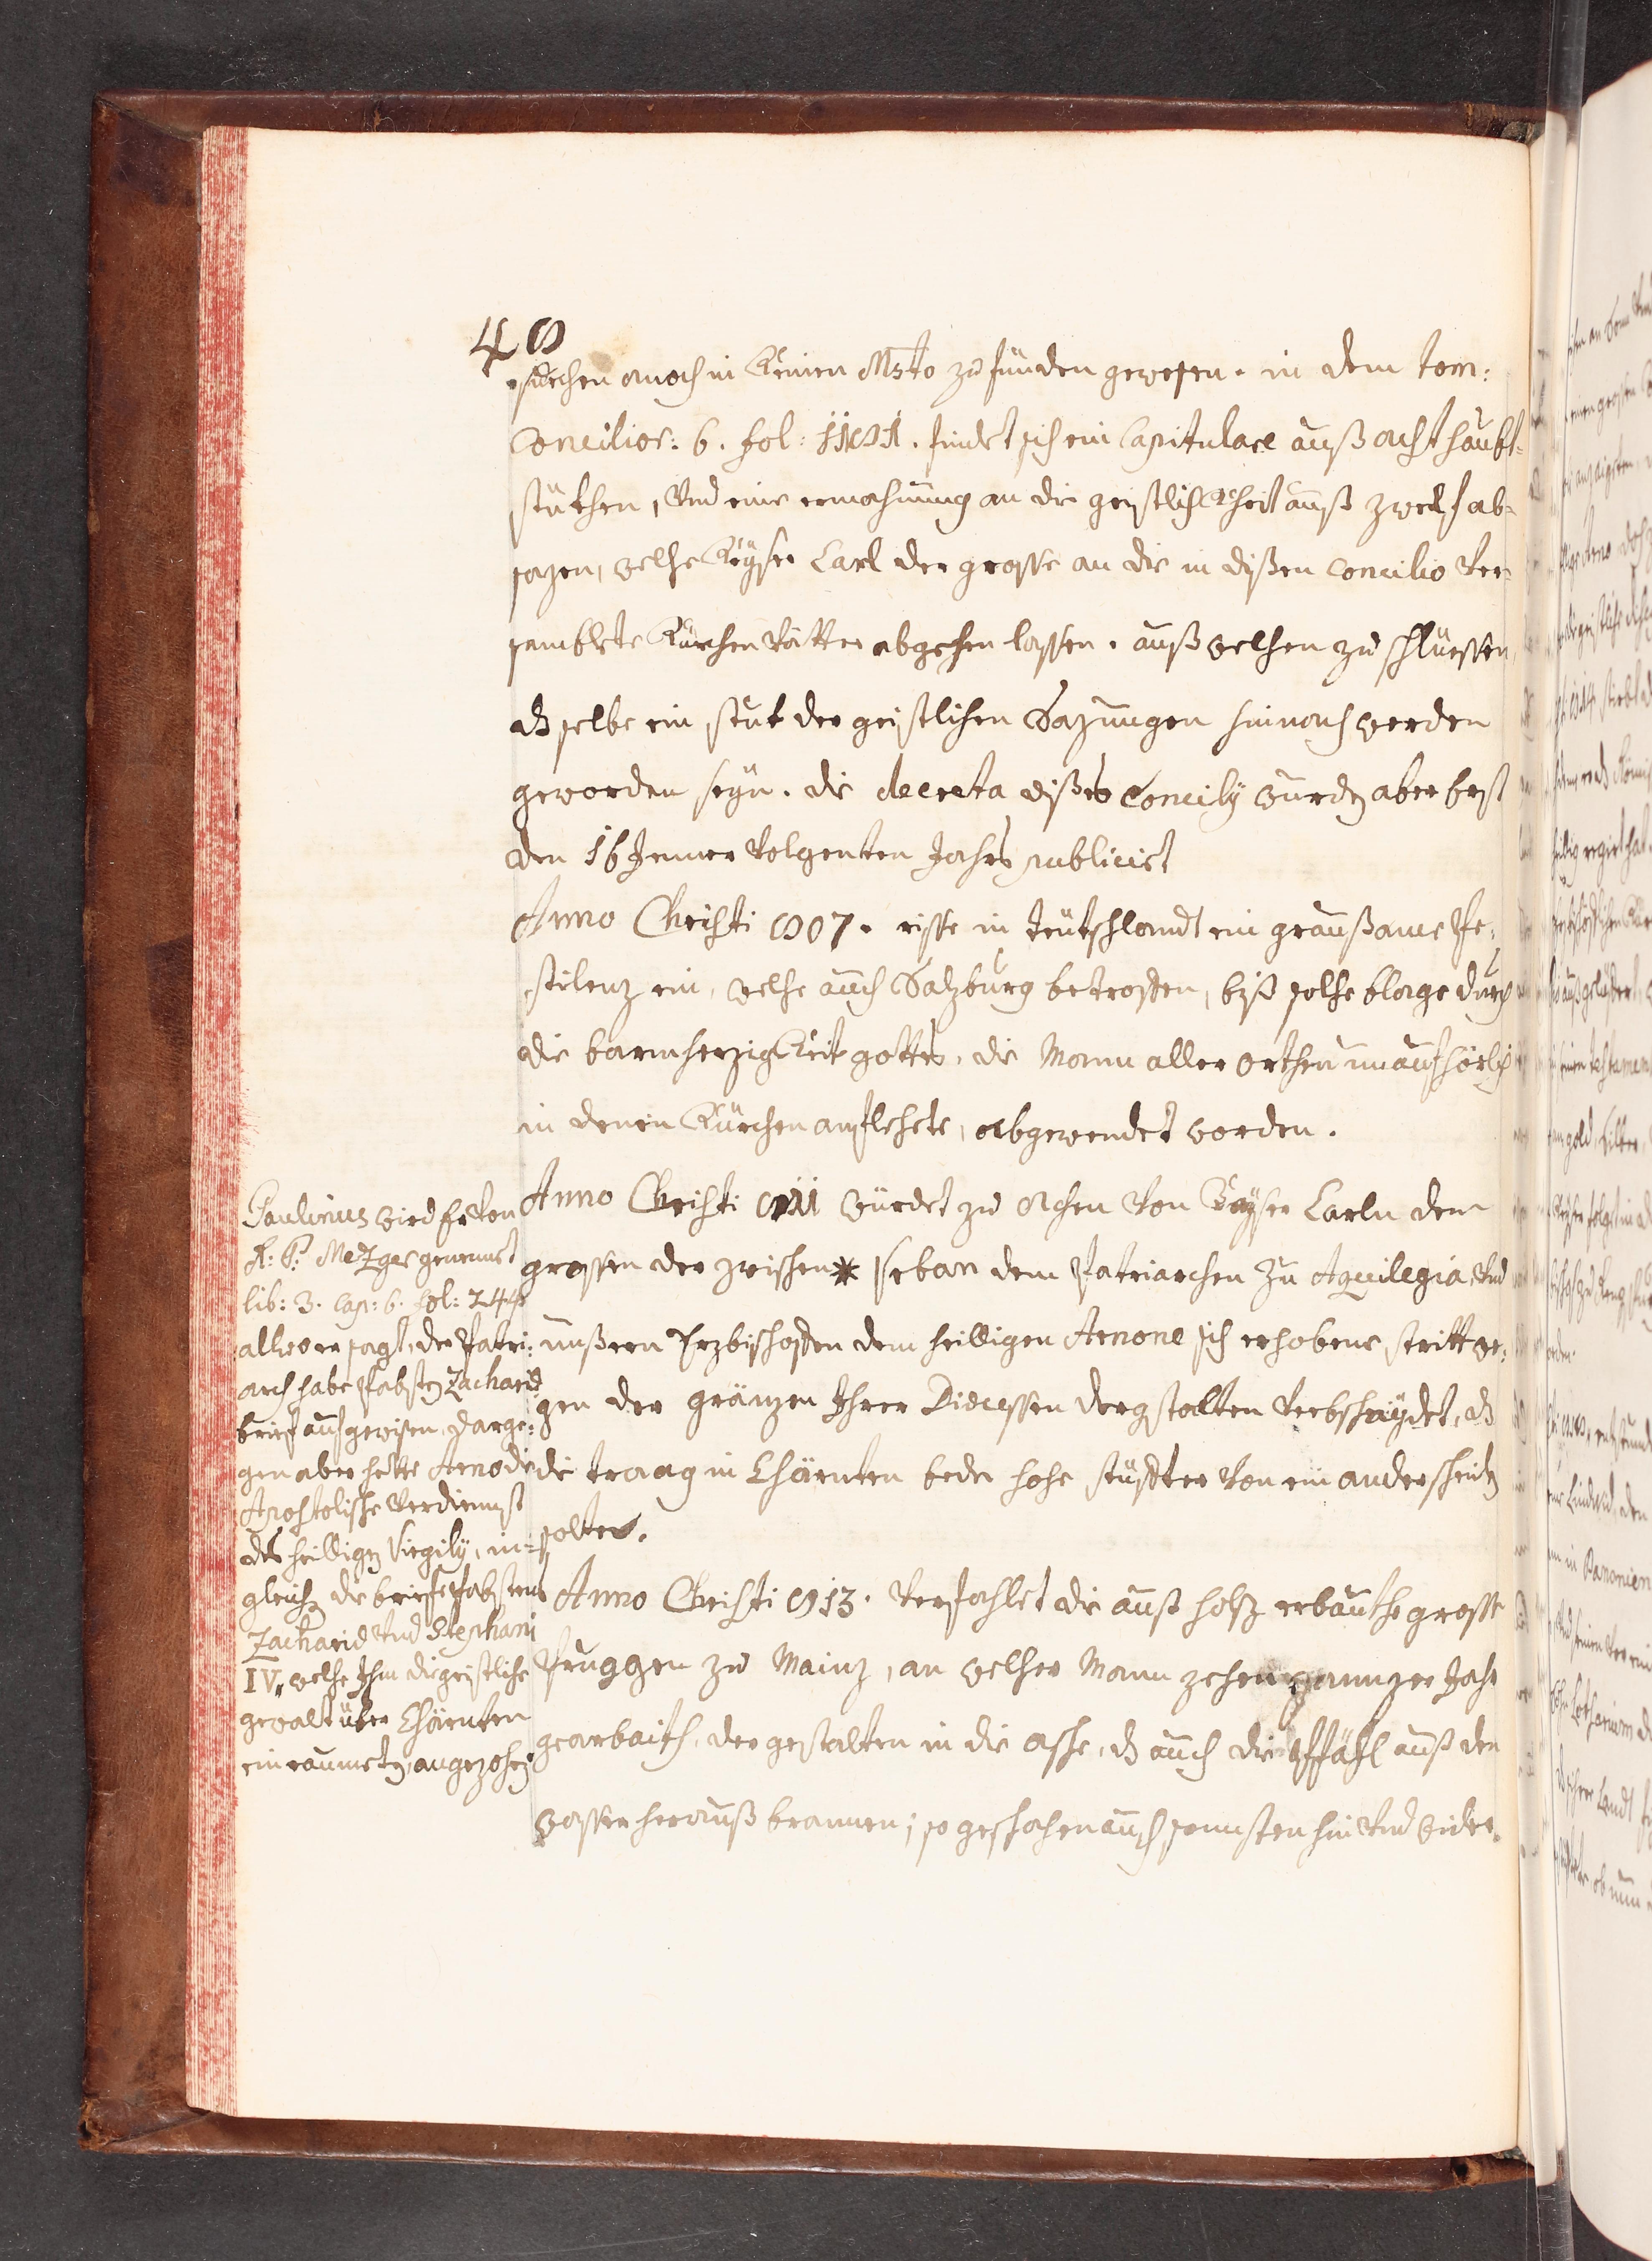 48
suechen annoch in keinen Msto zu fünden gewesen. in dem tom:
Concilior: 6. fol: 1181. findet sich ein Capitulare auß acht haubt-
stükhen, und eine ermahnung an die geistlichkheit auß zwelf ab-
sazen, welhe Keyser Carl der grosse an die in dißen concilio ver-
samblete Kürchen vätter abgehen lassen. auß welhen zu schlüessen,
dß selbe ein stuk der geistlichen Sazungen hinnach werden
geworden seyn. die decreta dißes Concilÿ wurdẽ aber erst
den 16 Jenner volgenten Jahrs publicirt
Anno Christi 807. risse in Teütschlandt ein graußame Pe-
stilenz ein, welhe auch Salzburg betroffen, biß solhe blage durch
die barmherzigkeit gottes, die Mann aller orthen unaufhörlich
in denen Kürchen anflehete, abgewendet worden.
Anno Christi 811 würdet zu Achen von Kayser Carln dem
grossen der zwischen * Urban dem Patriarchen zu Aquilegia, und
unßern Erzbischoffen dem heilligen Arnone sich erhobene stritt we-
gen der gränzen Ihrer Diœcessen dergstalten verbschaydet, dß
die traag in Chärnten bede hohe stüffter von ein ander scheidẽ
solte.
Anno Christi 813. verfahlet die auß holz erbauthe grosse
Pruggen zu Mainz, an welher Mann zehen ganzer Jahr
gearbaith, der gestalten in die asche, dß auch die Pfähl auß den
wasser herauß brannen; so geschahen auch sonnsten hin und wider
Paulinus wird er von
A: P: Mezger genennet
lib: 3. cap: 6. fol: 244
allwo er sagt, der Patri-
arch habe Pabstẽ Zachariæ
brief aufgewisen, darge-
gen aber hette Arno die
Apostolische verdiennst
des heilligẽ Virgilÿ, in-
gleichẽ die briefe Pabsten
Zachariæ und Stephani
IV, welhe Ihm die geistliche
gewalt über Chärnten
einraumetẽ, angezohẽ